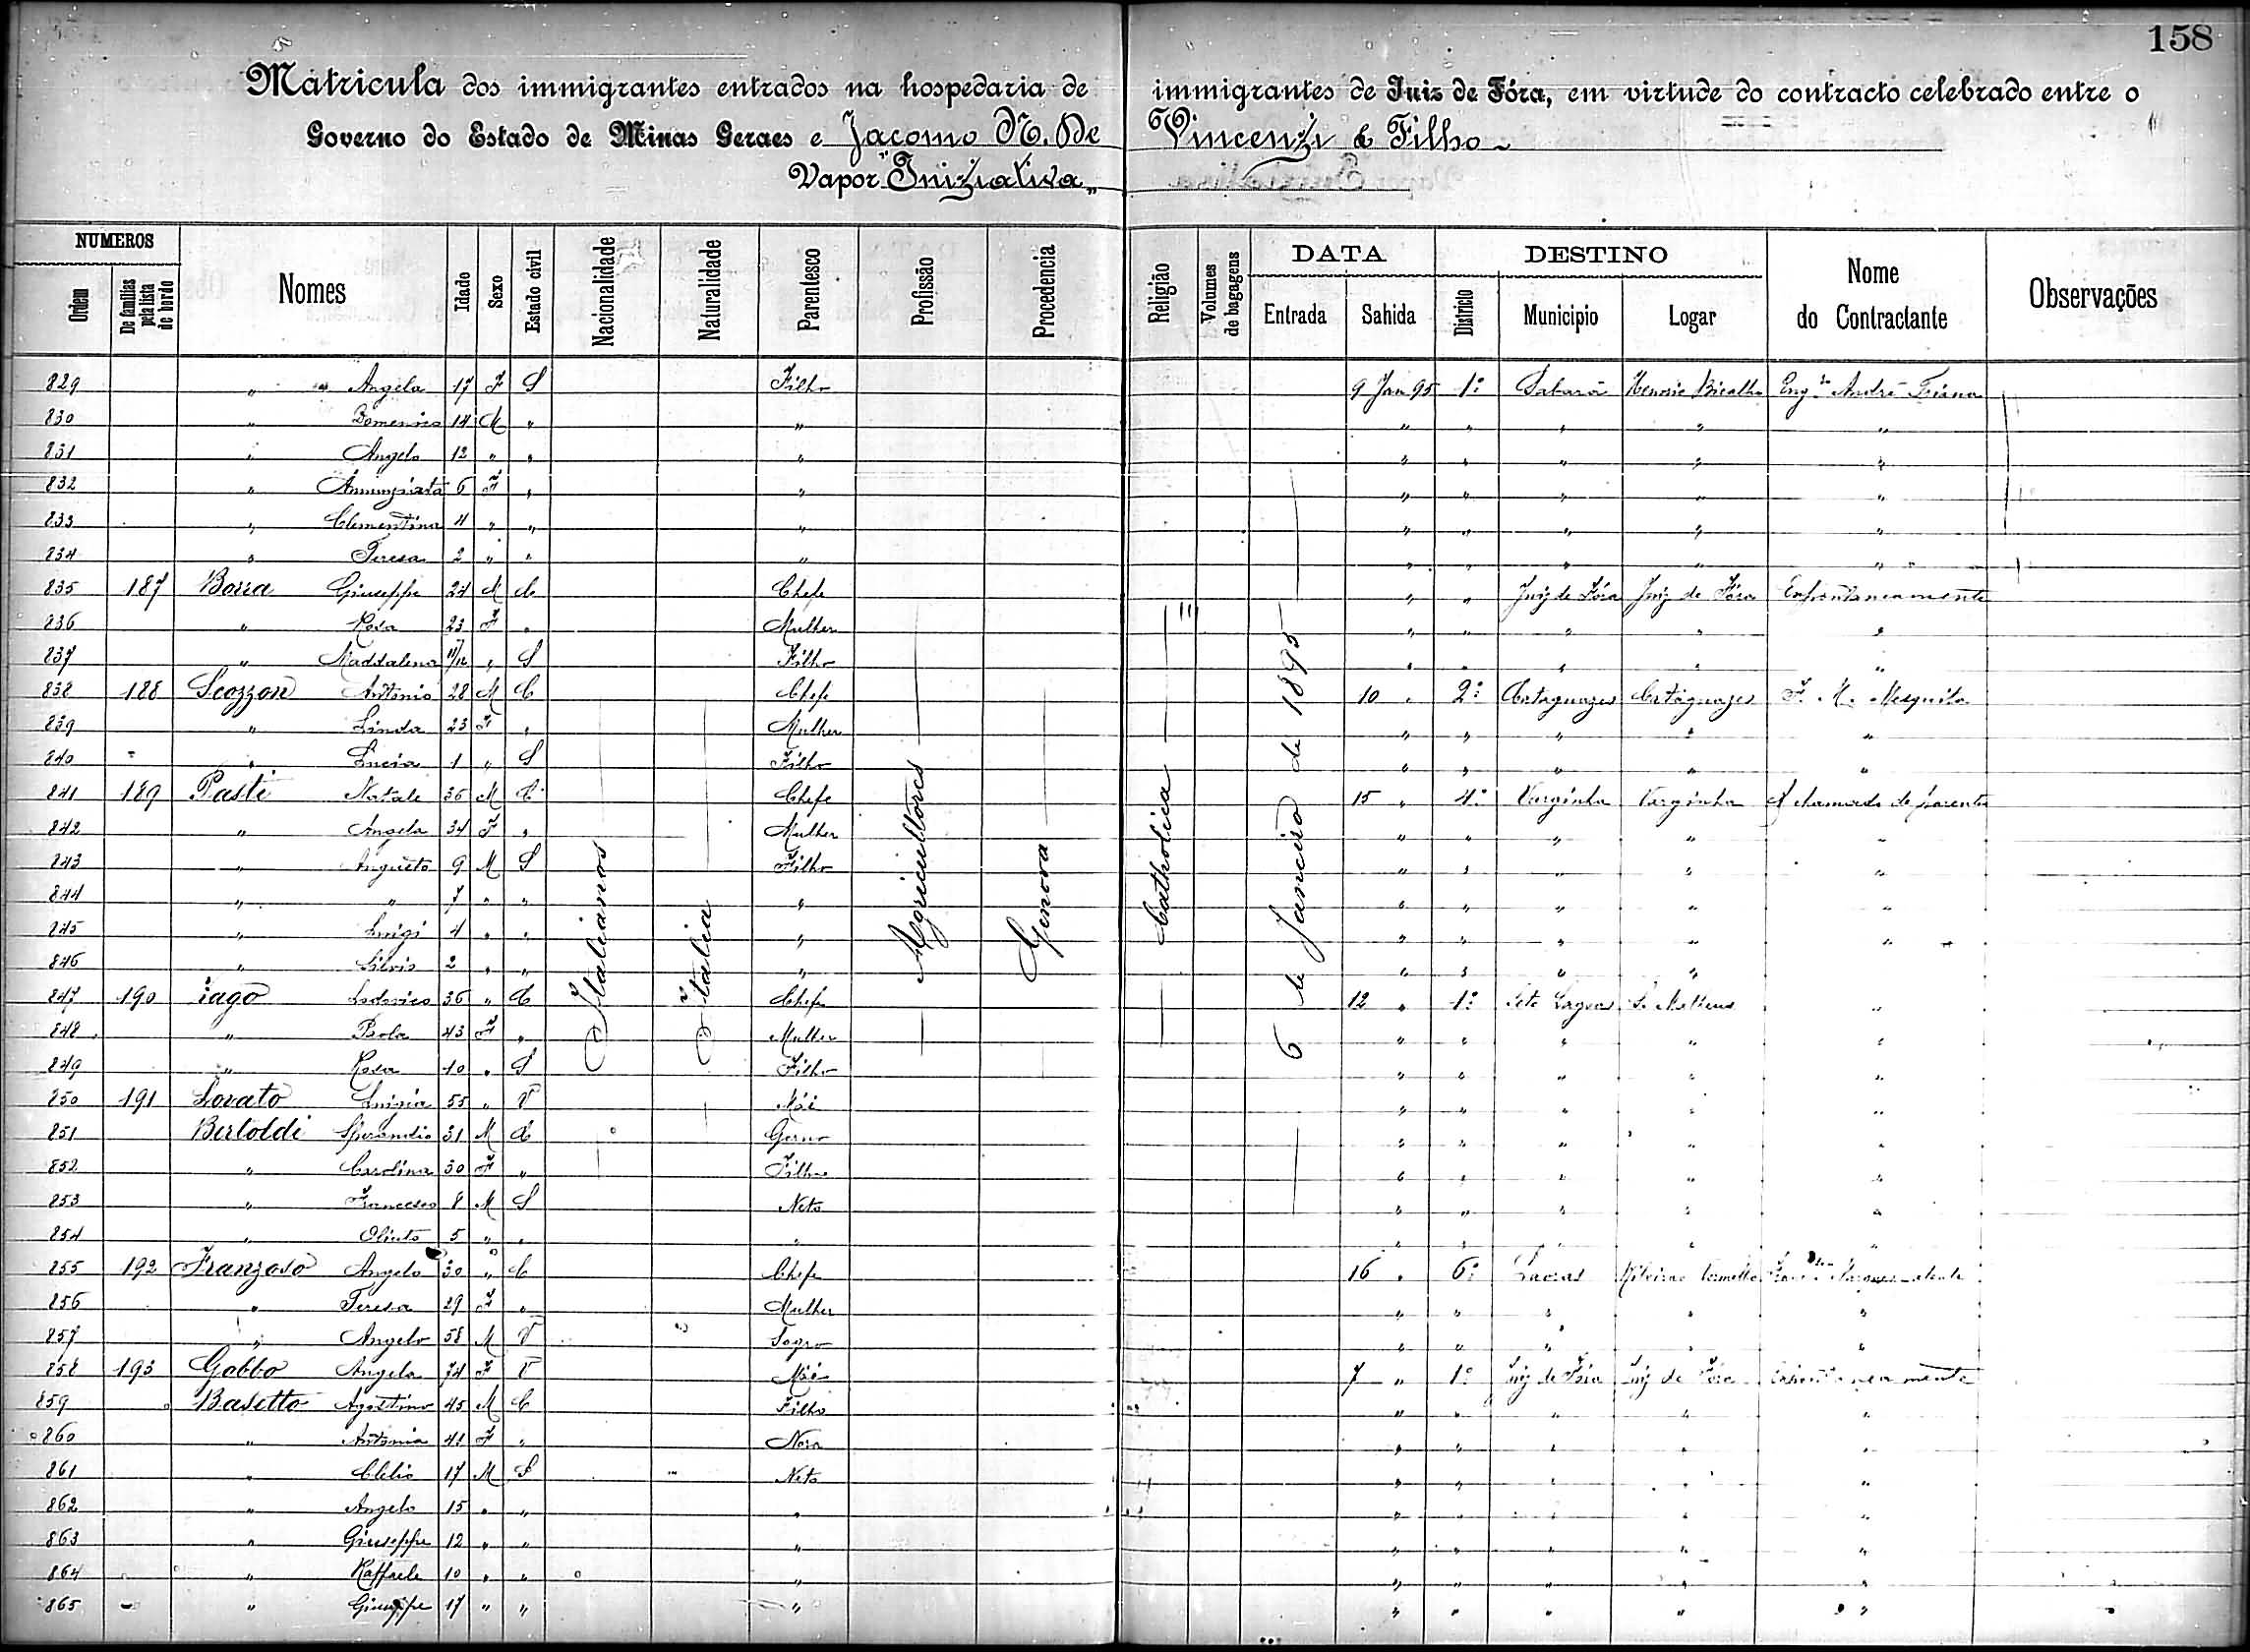 158
Matricula dos immigrantes entrados na hospedaria de immigrantes de Juiz de Fóra, em virtude do contracto celebrado entre o
Governo do Estado de Minas Geraes e Jacomo N. De Vincenzi & Filho
Vapor "Iniziativa"
NUMEROS Nomes Idade Sexo Estado civil Nacionalidade Naturalidade Parentesco Profissão Procedencia Religião Volumes de bagagens DATA DESTINO Nome do Contractante Observações
Ordem De familias pela lista de bordo Entrada Sahida Districto Municipio Logar
Italianos Italia Agricultores Genova Catholica 6 de Janeiro de 1895
829 " " Angela 17 F S Filho 9 Jan 95 1º Sabará Henrique Bicalho Eng.ro André
830 " Domenico 14 M " " " " " " "
831 " Angelo 12 " " " " " " " "
832 " Annunziata 6 F " " " " " " "
833 " Clementina 4 " " " " " " " "
834 " Teresa 2 " " " " " " " "
835 187 Borra Giuseppe 24 M C Chefe " " Juiz de Fóra Juiz de Fóra Espontaneamente
836 " Rosa 23 F " Mulher " " " " "
837 " Maddalena 11/12 " S Filho " " " " "
838 188 Scozzon Antonio 28 M C Chefe 10 " 2º Cataguazes Cataguazes F. M. Mesquita
839 " Linda 23 F " Mulher " " " " "
840 " Lucia 1 " S Filho " " " " "
841 189 Pasti Natale 36 M C Chefe 15 " 4º Varginha Varginha A chamado de parentes
842 " Angela 34 F " Mulher " " " " "
843 " Augusto 9 M S Filho " " " " "
844 " " 7 " " " " " " " "
845 " Luigi 4 " " " " " " " "
846 " Silvio 2 " " " " " " "
847 190 iago Lodovico 36 " C Chefe 12 " 1º Sete Lagoas S. Matheus "
848 " Paola 43 F " Mulher " " " " "
849 " Rosa 10 " S Filho " " " " "
850 191 Lovato Luigia 55 " V Mãi " " " " "
851 Bertoldi Sperandio 31 M C Genro " " " " "
852 " Carolina 30 F " Filho " " " " "
853 " Francesco 8 M S Neto " " " " "
854 " Olinto 5 " " " " " " " "
855 192 Franzoso Angelo 30 " C Chefe 16 " 6º Lavras Ribeirão Vermelho
856 " Teresa 29 F " Mulher " " " " "
857 " Angelo 58 M V Sogro " " " " "
858 193 Gobbo Angela 74 F V Mãi 7 " 1º Juiz de Fóra Juiz de Fóra Espontaneamente
859 Basetto Agostino 45 M C Filho " " " " "
860 " Antonia 41 F " Nora " " " " "
861 " Clelio 17 M S Neto " " " " "
862 " Angelo 15 " " " " " " " "
863 " Giuseppe 12 " " " " " " " "
864 " Raffaele 10 " " " " " " " "
865 " Giuseppe 17 " " " " " " " "